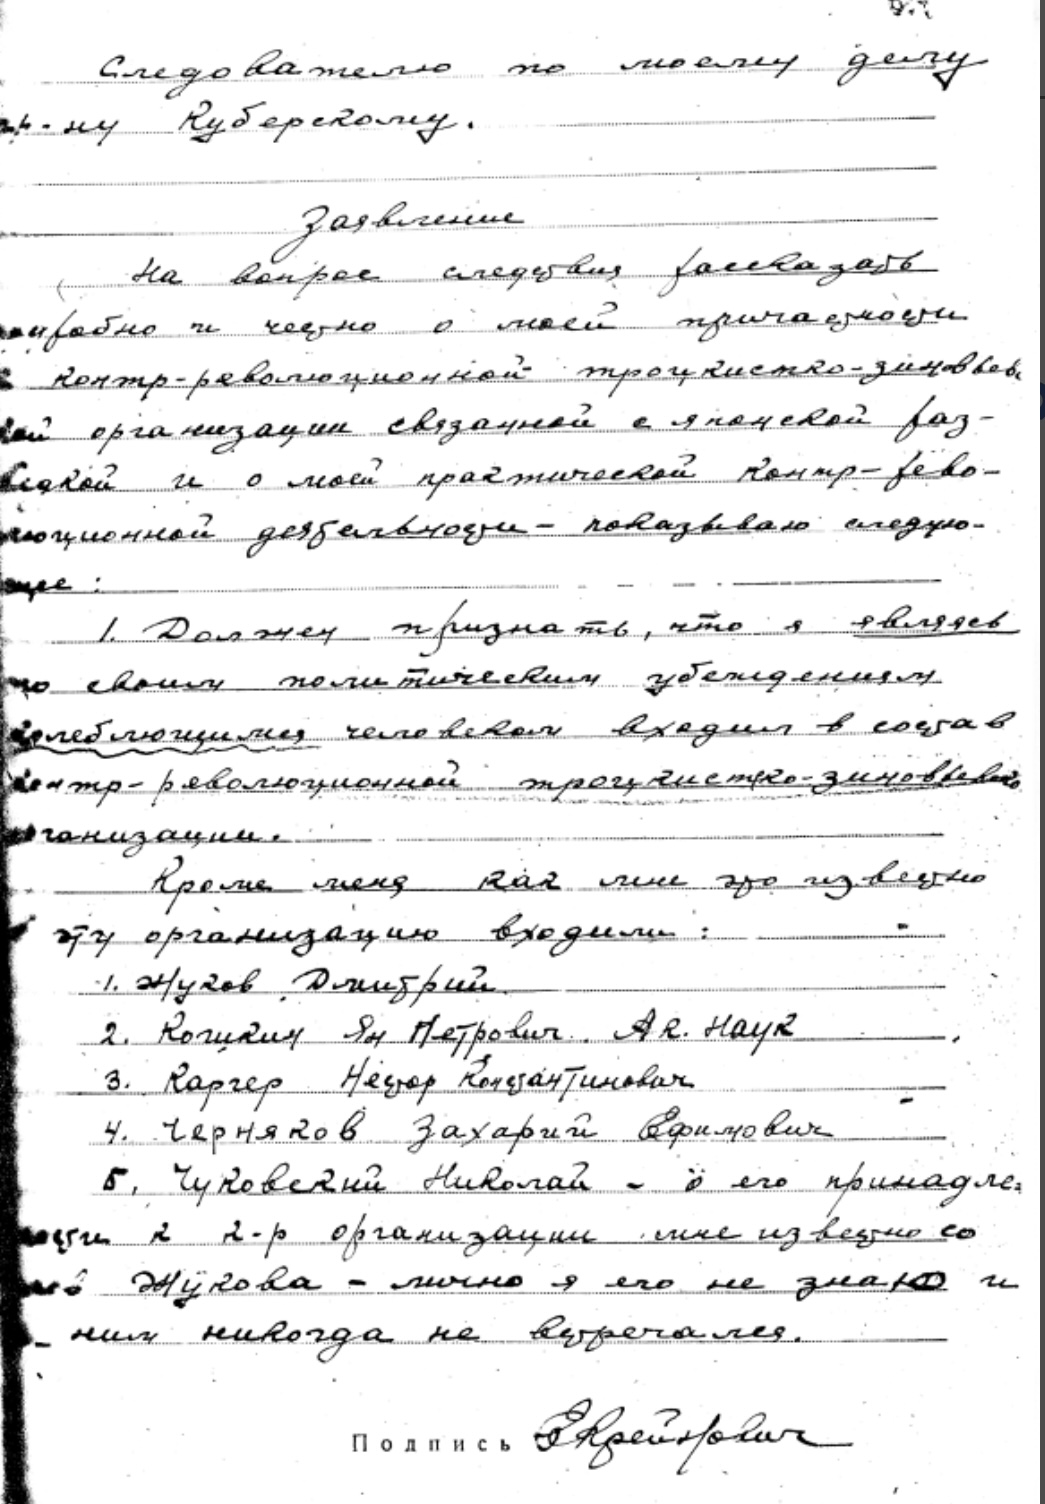 Следователю по моему делу
гр-ну Куберскому.
Заявление
На вопрос следствия рассказать
подробно и честно о моей причастности
к контр-революционной троцкистко-зиновьев
кой организации связанной с японской раз-
ведкой и о моей практической контр-рево-
люционной деятельности - показываю следую-
щее :
1. Должен признать, что я являясь
по своим политическим убеждениям
колеблющимся человеком входил в состав
контр-революционной троцкистко-зиновьевско
организации.
Кроме меня как мне это известно
эту организацию входили :
1. Жуков Дмитрий
2. Кошкин Ян Петрович. Ак. Наук
3. Каргер Нестор Константинович
4. Черняков Захарий Ефимович
5. Чуковский Николай - о его принадле
ности к к-р организации мне известно со
слов Жукова - лично я его не знаю и
с ним никогда не встречался.
Подпись ЕКрейнович